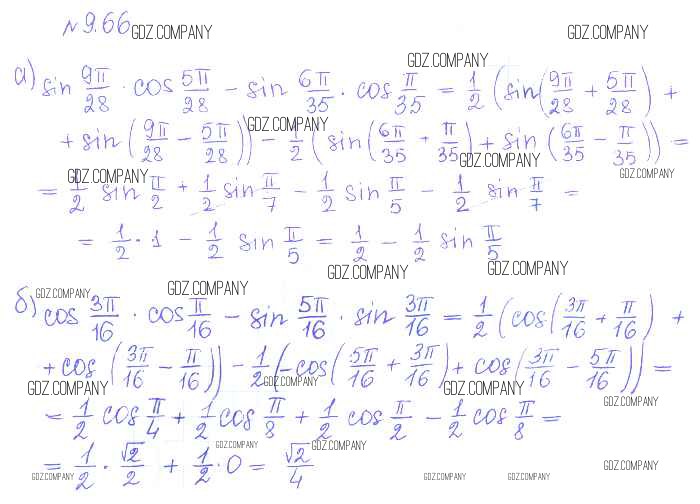 №9.66 GDZ.COMPANY GDZ.COMPANY
GDZ.COMPANY
а) sin 9π/28 · cos 5π/28 - sin 6π/35 · cos π/35 = 1/2 (sin(9π/28 + 5π/28) +
GDZ.COMPANY
+ sin (9π/28 - 5π/28)) - 1/2 (sin(6π/35 + π/35) + sin (6π/35 - π/35)) =
GDZ.COMPANY
GDZ.COMPANY GDZ.COMPANY
= 1/2 sin π/2 + 1/2 sin π/7 - 1/2 sin π/5 - 1/2 sin π/7 =
= 1/2 · 1 - 1/2 sin π/5 = 1/2 - 1/2 sin π/5
GDZ.COMPANY GDZ.COMPANY
GDZ.COMPANY GDZ.COMPANY
б) cos 3π/16 · cos π/16 - sin 5π/16 · sin 3π/16 = 1/2 (cos(3π/16 + π/16) +
+ cos (3π/16 - π/16)) - 1/2 (-cos(5π/16 + 3π/16) + cos(3π/16 - 5π/16)) =
GDZ.COMPANY GDZ.COMPANY GDZ.COMPANY
GDZ.COMPANY
= 1/2 cos π/4 + 1/2 cos π/8 + 1/2 cos π/2 - 1/2 cos π/8 =
GDZ.COMPANY GDZ.COMPANY
= 1/2 · √2/2 + 1/2 · 0 = √2/4
GDZ.COMPANY
GDZ.COMPANY GDZ.COMPANY GDZ.COMPANY GDZ.COMPANY